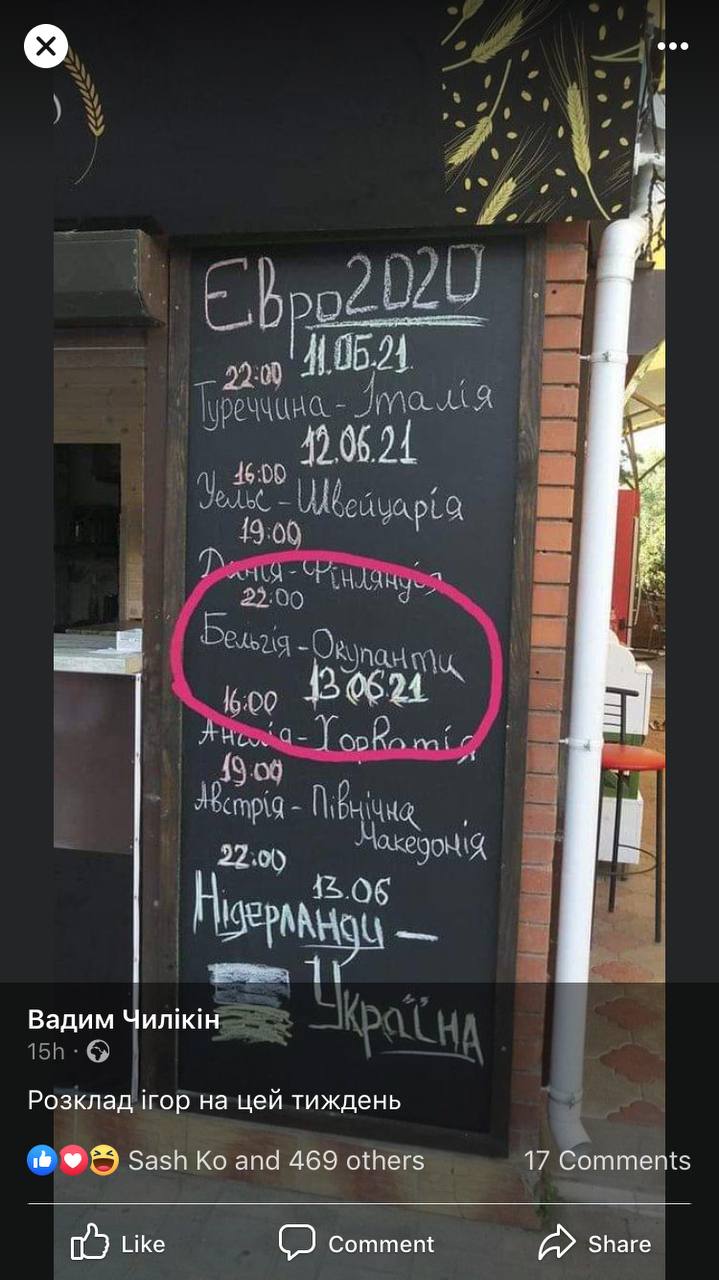 Євро2020
11.05.21
22:00
Туреччина - Італія
12.06.21
16:00
Уельс - Швейцарія
19:00
Данія - Фінляндія
22:00
Бельгія - Окупанти
13 06 21
16:00
Англія - Хорватія
19:00
Австрія - Північна
Македонія
22.00
13.06
Нідерланди -
Україна
Вадим Чилікін
15h ·
Розклад ігор на цей тиждень
Sash Ko and 469 others
17 Comments
Like
Comment
Share